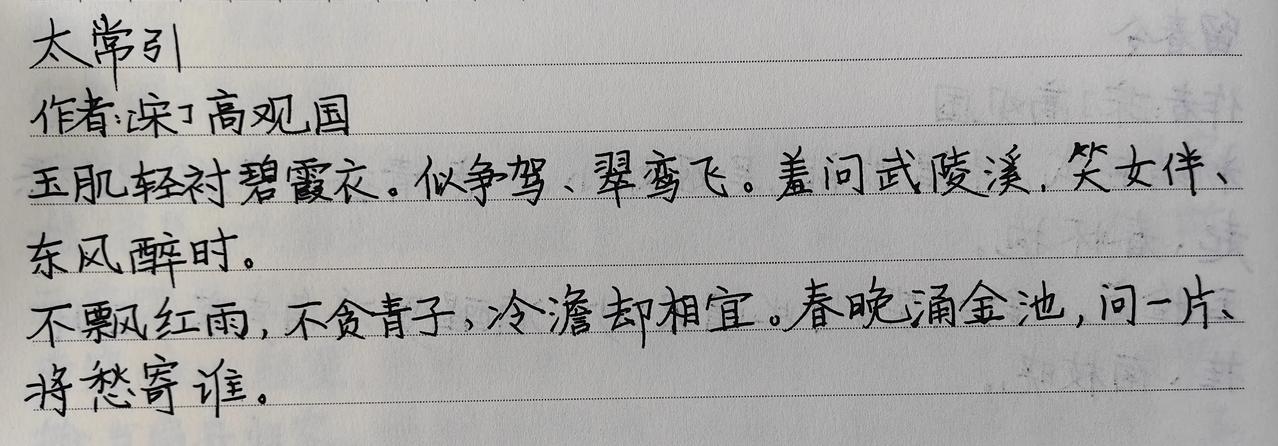 太常引
作者:[宋]高观国
玉肌轻衬碧霞衣。似争驾、翠鸾飞。羞问武陵溪,笑女伴、
东风醉时。
不飘红雨,不贪青子,冷澹却相宜。春晚涌金池,问一片、
将愁寄谁。